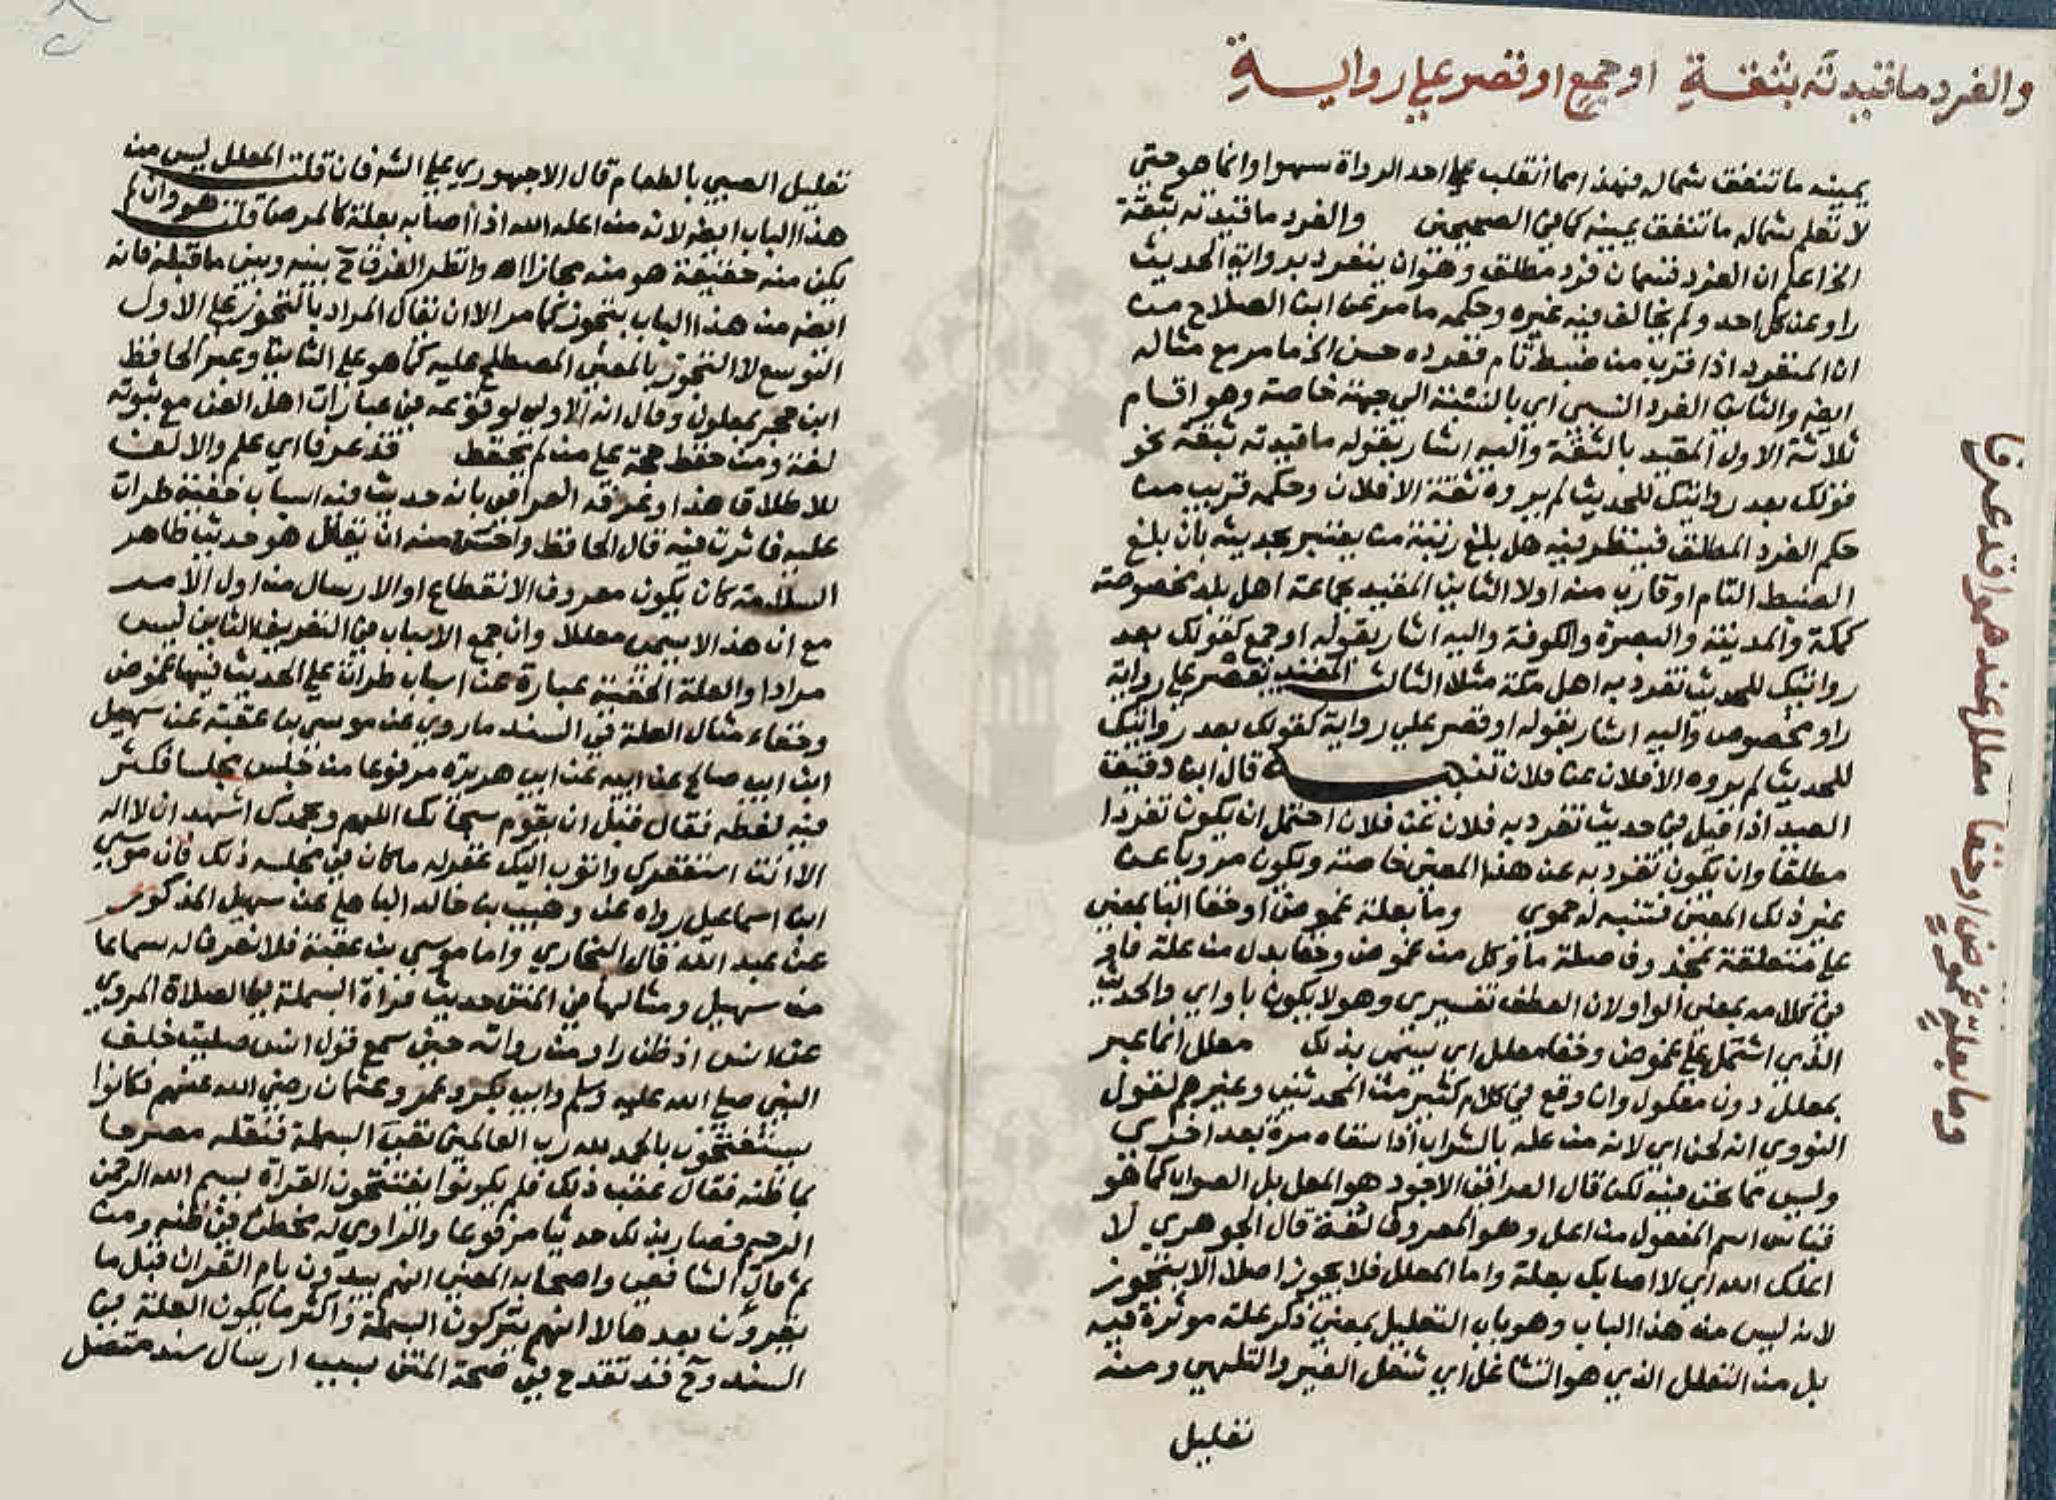 والفرد ما قيدته بثقة او جمع او قصر على رواية
يمينه ما تنفق شماله فهذا مما انقلب على احد الرواة سهوا وانما هو حتى
لا تعلم شماله ما تنفق يمينه كما في الصحيحين والفرد ما قيدته بثقة
الخ اعلم ان الفرد قسمان فرد مطلق وهو ان ينفرد برواية الحديث
راو عن كل احد ولم يخالف فيه غيره وحكمه ما مر عن ابن الصلاح من
ان المنفرد اذا قرب من ضبط تام ففرده حسن الخ ما مر مع مثاله
ايضا والثاني الفرد النسبي اي بالنسبة الى جهة خاصة وهو اقسام
ثلاثة الاول المقيد بالثقة واليه اشار بقوله ما قيدته بثقة نحو
قولك بعد روايتك للحديث لم يروه ثقة الا فلان وحكمه قريب من
حكم الفرد المطلق فينظر فيه هل بلغ رتبة من يعتبر بحديثه بان بلغ
الضبط التام او قارب منه اولا الثاني المقيد بجماعة اهل بلد مخصوصة
كمكة والمدينة والبصرة والكوفة واليه اشار بقوله او جمع كقولك بعد
روايتك للحديث تفرد به اهل مكة مثلا الثالث المقيد بقصر على رواية
راو مخصوص واليه اشار بقوله او قصر على رواية كقولك بعد روايتك
للحديث لم يروه الا فلان عن فلان تنبيه قال ابن دقيق
العيد اذا قيل في حديث تفرد به فلان عن فلان احتمل ان يكون تفردا
مطلقا وان يكون تفرد به عن هذا المعين خاصة ويكون مرويا عن
غير ذلك المعين فتنبه له حموي وما بعلة غموض او خفا البا بمعنى
على متعلقة بمحذوف صلة ما وكل من غموض وخفا بدل من علة فاو
في كلامه بمعنى الواو لان العطف تفسيري وهو لا يكون باو اي والحديث
الذي اشتمل على غموض وخفا معلل اي يسمى بذلك معلل انما عبر
بمعلل دون معلول وان وقع في كلام كثير من المحدثين وغيرهم لقول
النووي انه لحن اي لانه من عله بالشراب اذا سقاه مرة بعد اخرى
وليس مما نحن فيه لكن قال العراقي الاجود هو المعل بل الصواب كما هو
قياس اسم المفعول من اعل وهو المعروف لغة قال الجوهري لا
اعلك الله اي لا اصابك بعلة واما المعلل فلا يجوز اصلا الا بتجوز
لانه ليس من هذا الباب وهو باب التعليل بمعنى ذكر علة موثرة فيه
بل من التعلل الذي هو التشاغل اي شغل الغير والتلهي ومنه
تعليل
وما بعلة غموض او خفا معلل عندهموا قد عرفا
تعليل الصبي بالطعام قال الاجهوري على الش فان قلت المعلل ليس من
هذا الباب ايضا لانه من اعله الله اذا اصابه بعلة كالمرض قلت هو وان لم
يكن منه حقيقة هو منه مجازا اه وانظر الفرق ح بينه وبين ما قبله فانه
ايضا من هذا الباب بتجوز كما مر الا ان يقال المراد بالتجوز على الاول
التوسع لا التجوز بالمعنى المصطلح عليه كما هو على الثاني وعبر الحافظ
ابن حجر بمعلول وقال انه الاولى لوقوعه في عبارات اهل الفن مع ثبوته
لغة ومن حفظ حجة على من لم يحفظ قد عرفا اي علم والالف
للاطلاق هذا وعرفه العراقي بانه حديث فيه اسباب خفية طرات
عليه فاثرت فيه قال الحافظ واحسن منه ان يقال هو حديث ظاهر
السلامة كان يكون معروف الانقطاع او الارسال من اول الامر
مع ان هذا لا يسمى معللا وان جمع الاسباب في التعريف الثاني ليس
مرادا والعلة الخفية عبارة عن اسباب طرات على الحديث فيها غموض
وخفاء مثال العلة في السند ما روي عن موسى بن عقبة عن سهيل
ابن ابي صالح عن ابيه عن ابي هريرة مرفوعا من جلس مجلسا فكثر
فيه لغطه فقال قبل ان يقوم سبحانك اللهم وبحمدك اشهد ان لا اله
الا انت استغفرك واتوب اليك غفر له ما كان في مجلسه ذلك فان موسى
ابن اسماعيل رواه عن وهيب بن خالد الباهلي عن سهيل المذكور
عن عبد الله قال البخاري واما موسى بن عقبة فلا نعرف له سماعا
من سهيل ومثالها في المتن حديث قراة البسملة في الصلاة المروي
عن انس اذ ظن راو من رواته حين سمع قول انس صليت خلف
النبي صلى الله عليه وسلم وابي بكر وعمر وعثمان رضي الله عنهم فكانوا
يستفتحون بالحمد لله رب العالمين نفي البسملة فنقله مصرحا
بما ظنه فقال عقب ذلك فلم يكونوا يفتتحون القراة ببسم الله الرحمن
الرحيم فصار بذلك حديثا مرفوعا والراوي له مخطئ في ظنه ومن
ثم قال الشافعي واصحابه المعنى انهم يبدون بام القران قبل ما
يقرؤن بعدها لا انهم يتركون البسملة واكثر ما يكون العلة في
السند وح قد تقدح في صحة المتن بسبب ارسال سند متصل